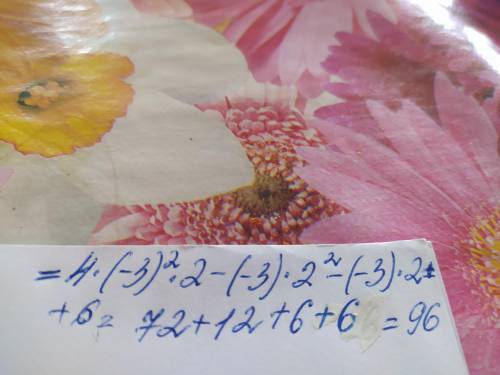 = 4·(-3)²·2-(-3)·2²-(-3)·2+
+6= 72+12+6+6=96